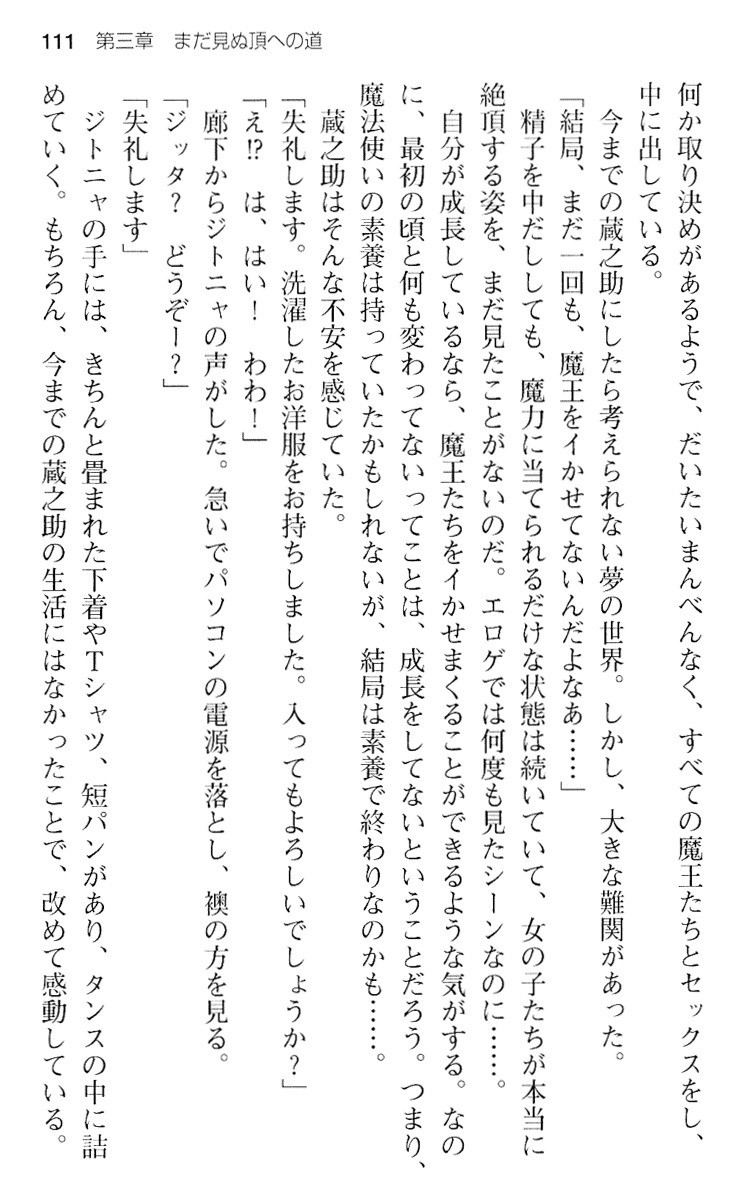 111 第三章　まだ見ぬ頂への道
何か取り決めがあるようで、だいたいまんべんなく、すべての魔王たちとセックスをし、
中に出している。
　今までの蔵之助にしたら考えられない夢の世界。しかし、大きな難関があった。
「結局、まだ一回も、魔王をイかせてないんだよなあ……」
　精子を中だししても、魔力に当てられるだけな状態は続いていて、女の子たちが本当に
絶頂する姿を、まだ見たことがないのだ。エロゲでは何度も見たシーンなのに……。
　自分が成長しているなら、魔王たちをイかせまくることができるような気がする。なの
に、最初の頃と何も変わってないってことは、成長をしてないということだろう。つまり、
魔法使いの素養は持っていたかもしれないが、結局は素養で終わりなのかも……。
　蔵之助はそんな不安を感じていた。
「失礼します。洗濯したお洋服をお持ちしました。入ってもよろしいでしょうか？」
「え!?　は、はい！　わわ！」
　廊下からジトニャの声がした。急いでパソコンの電源を落とし、襖の方を見る。
「ジッタ？　どうぞー？」
「失礼します」
　ジトニャの手には、きちんと畳まれた下着やＴシャツ、短パンがあり、タンスの中に詰
めていく。もちろん、今までの蔵之助の生活にはなかったことで、改めて感動している。